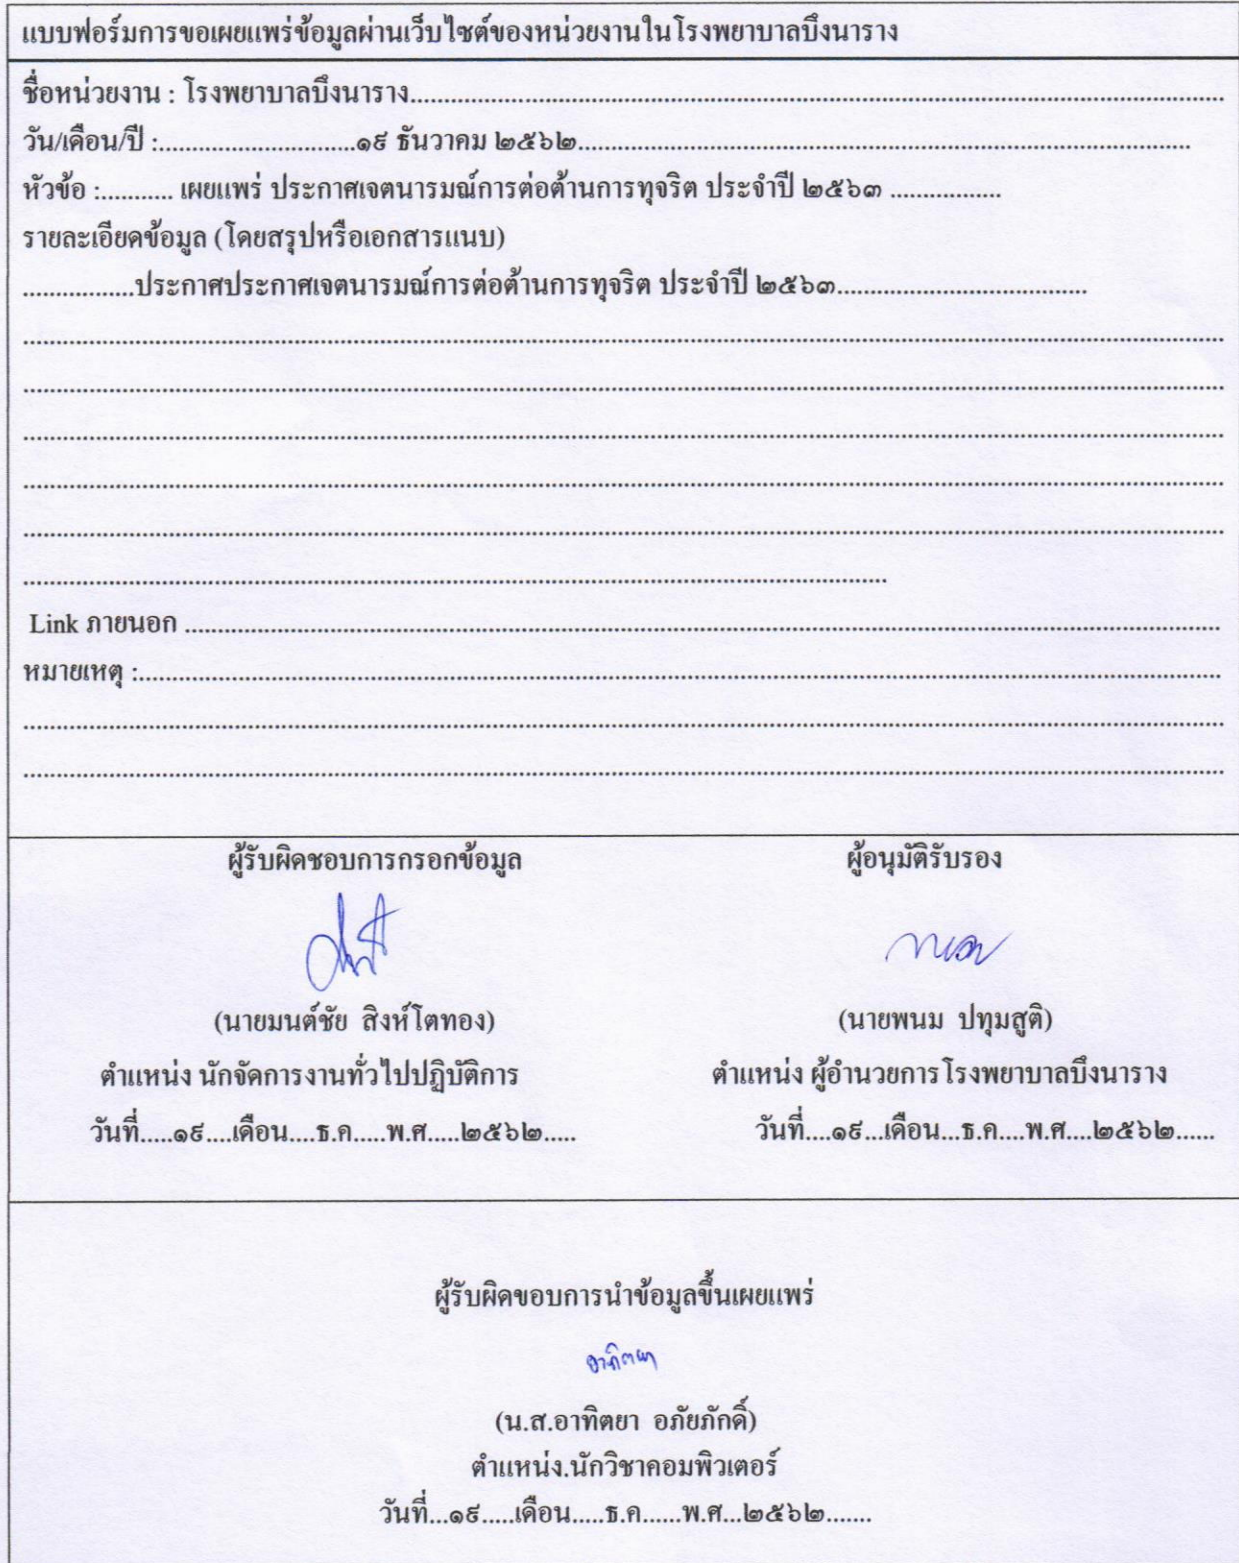 แบบฟอร์มการขอเผยแพร่ข้อมูลผ่านเว็บไซต์ของหน่วยงานในโรงพยาบาลบึงนาราง
ชื่อหน่วยงาน : โรงพยาบาลบึงนาราง
วัน/เดือน/ปี :.............................๑๙ ธันวาคม ๒๕๖๒
หัวข้อ :........... เผยแพร่ ประกาศเจตนารมณ์การต่อต้านการทุจริต ประจำปี ๒๕๖๓ .................
รายละเอียดข้อมูล (โดยสรุปหรือเอกสารแนบ)
.................ประกาศประกาศเจตนารมณ์การต่อต้านการทุจริต ประจำปี ๒๕๖๓......................................
Link ภายนอก
หมายเหตุ :
ผู้รับผิดชอบการกรอกข้อมูล
(นายมนต์ชัย สิงห์โตทอง)
ตำแหน่ง นักจัดการงานทั่วไปปฏิบัติการ
วันที่.....๑๙....เดือน....ธ.ค.....พ.ศ.....๒๕๖๒.....
ผู้อนุมัติรับรอง
(นายพนม ปทุมสูติ)
ตำแหน่ง ผู้อำนวยการโรงพยาบาลบึงนาราง
วันที่....๑๙...เดือน...ธ.ค....พ.ศ....๒๕๖๒......
ผู้รับผิดขอบการนำข้อมูลขึ้นเผยแพร่
อาทิตยา
(น.ส.อาทิตยา อภัยภักดิ์)
ตำแหน่ง.นักวิชาคอมพิวเตอร์
วันที่...๑๙.....เดือน.....ธ.ค......พ.ศ...๒๕๖๒.......